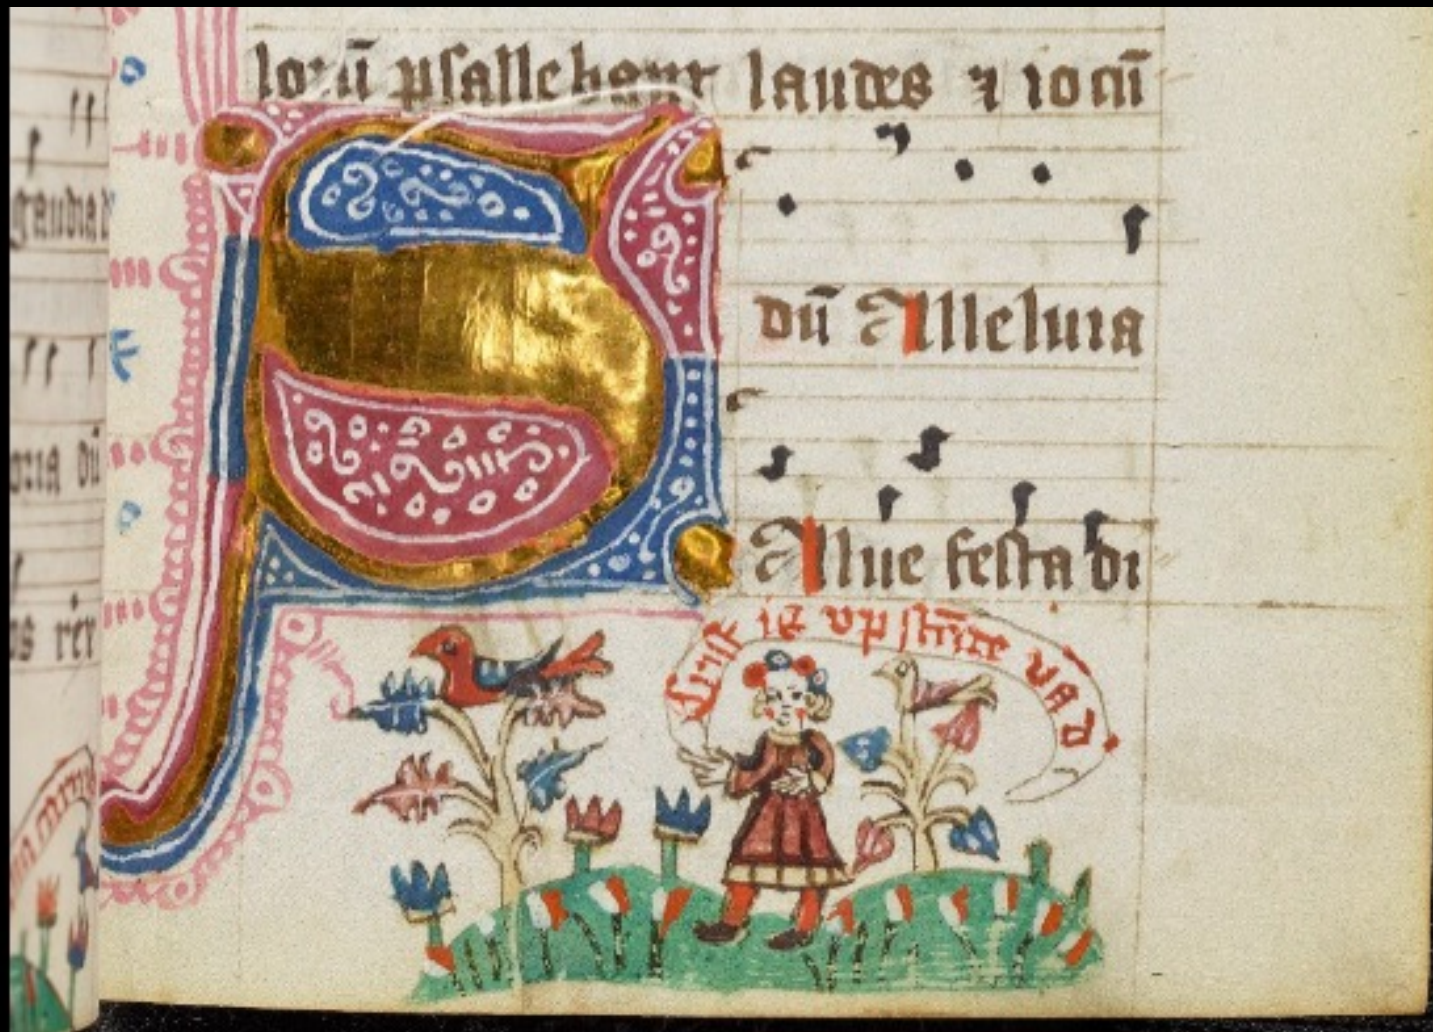 lorū psallebant laudes ⁊ iocū
dū Alleluia
Salue festa di
Crist is vp stande vā d
gaudia d
oria dū
us rex